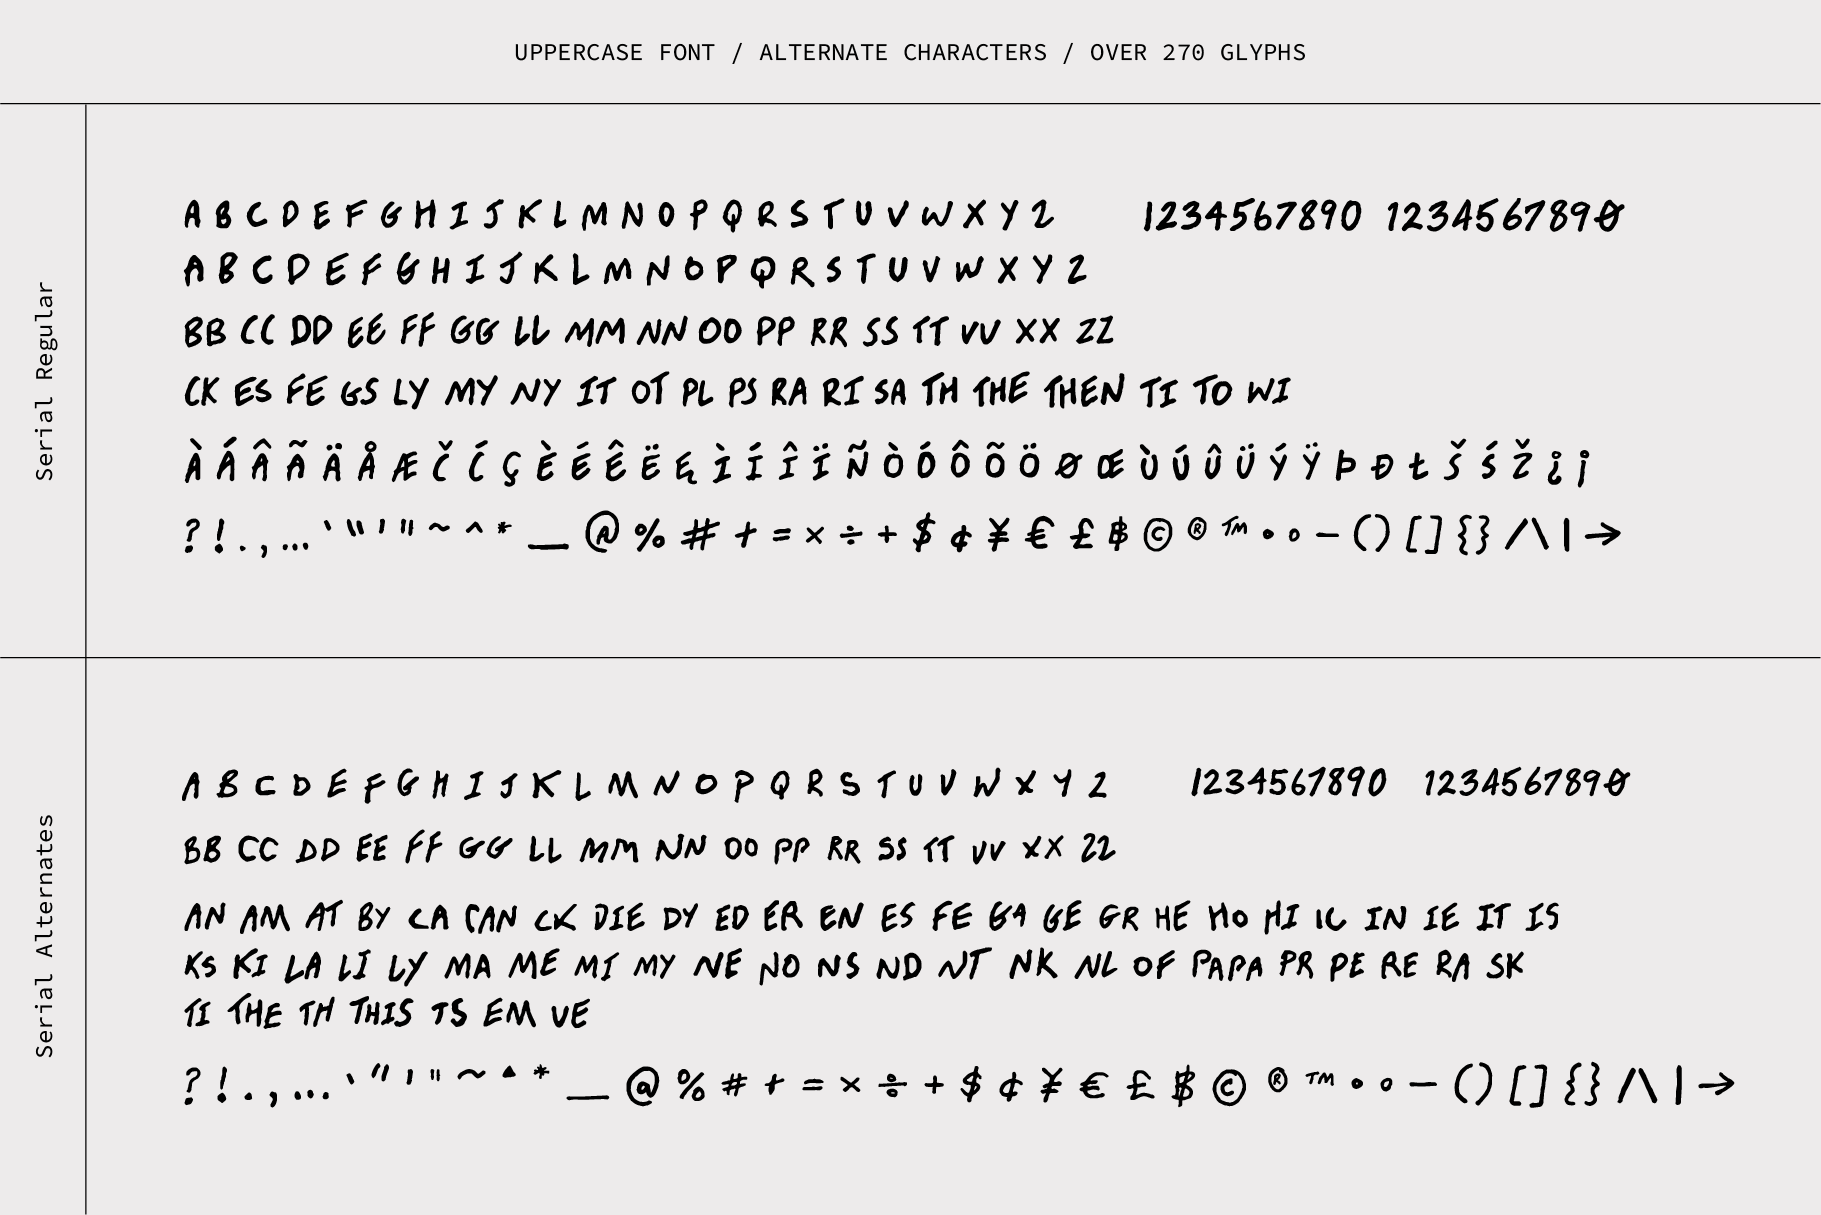 UPPERCASE FONT / ALTERNATE CHARACTERS / OVER 270 GLYPHS
Serial Regular
A B C D E F G H I J K L M N O P Q R S T U V W X Y Z 1234567890 1234567890
A B C D E F G H I J K L M N O P Q R S T U V W X Y Z
BB CC DD EE FF GG LL MM NN OO PP RR SS TT VV XX ZZ
CK ES FE GS LY MY NY IT OT PL PS RA RI SA TH THE THEN TI TO WI
À Á Â Ã Ä Å Æ Č Ć Ç È É Ê Ë Ę Ì Í Î Ï Ñ Ò Ó Ô Õ Ö Ø Œ Ù Ú Û Ü Ý Ÿ Þ Đ Ł Š Ś Ž ¿ ¡
? ! . , … ‵ " ' " ~ ^ * _ @ % # + = × ÷ + $ ¢ ¥ € £ ฿ © ® ™ • ◦ – ( ) [ ] { } / \ | →
Serial Alternates
A B C D E F G H I J K L M N O P Q R S T U V W X Y Z 1234567890 1234567890
BB CC DD EE FF GG LL MM NN OO PP RR SS TT VV XX ZZ
AN AM AT BY CA CAN CK DIE DY ED ER EN ES FE GA GE GR HE HO HI IC IN IE IT IS
KS KI LA LI LY MA ME MI MY NE NO NS ND NT NK NL OF PAPA PR PE RE RA SK
TI THE TH THIS TS EM VE
? ! . , … ‵ " ' " ~ ^ * _ @ % # + = × ÷ + $ ¢ ¥ € £ ฿ © ® ™ • ◦ – ( ) [ ] { } / \ | →